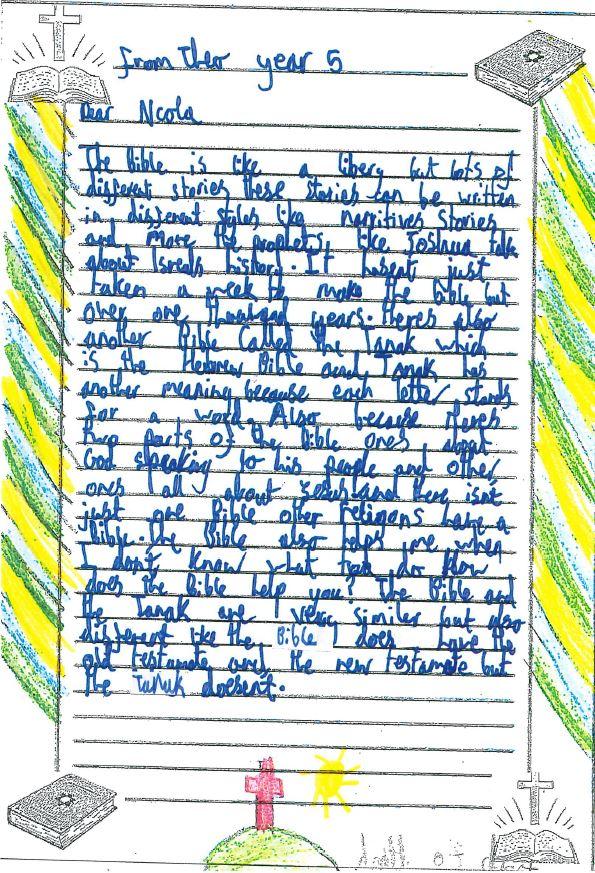 from Theo year 5
Dear Ncola
The Bible is like a libery but lots of
different stories these stories can be written
in different styles like narritives stories
and more the prophets like Joshua talk
about Isreals history. It hasent just
taken a week to make the bible but
over one thousand years. Heres also
another Bible Called the Tanak which
is the Hebrew Bible and Tanak has
another meaning because each letter stands
for a word. Also because theres
two parts of the bible ones about
God speaking to his people and other
ones all about Jesus and there isnt
just one Bible other religons have a
Bible. The Bible also helps me when
I dont know what too do How
does the Bible help you? The Bible and
the Tanak are very similer but also
different like the Bible does have the
old testamate and the new testamate but
the Tanak doesent.